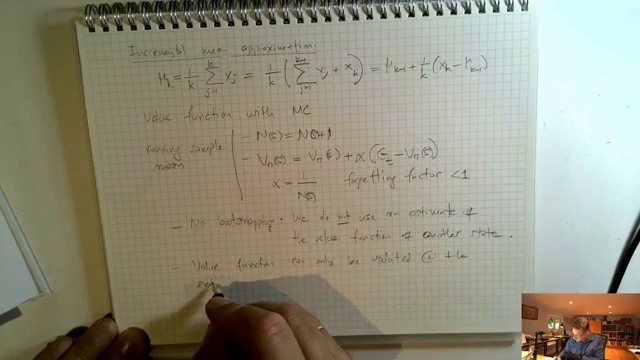 Incremental mean approximation:
μ_k = 1/k Σ_{j=1}^{k} x_j = 1/k ( Σ_{j=1}^{k-1} x_j + x_k ) = μ_{k-1} + 1/k (x_k − μ_{k-1})
Value function with MC
running sample mean
− N(s) = N(s)+1
− V_π(s) = V_π(s) + α (G_t − V_π(s))
α = 1/N(s) forgetting factor <1
− No bootstrapping: We do not use an estimate of
the value function of another state.
− Value function can only be updated @ the